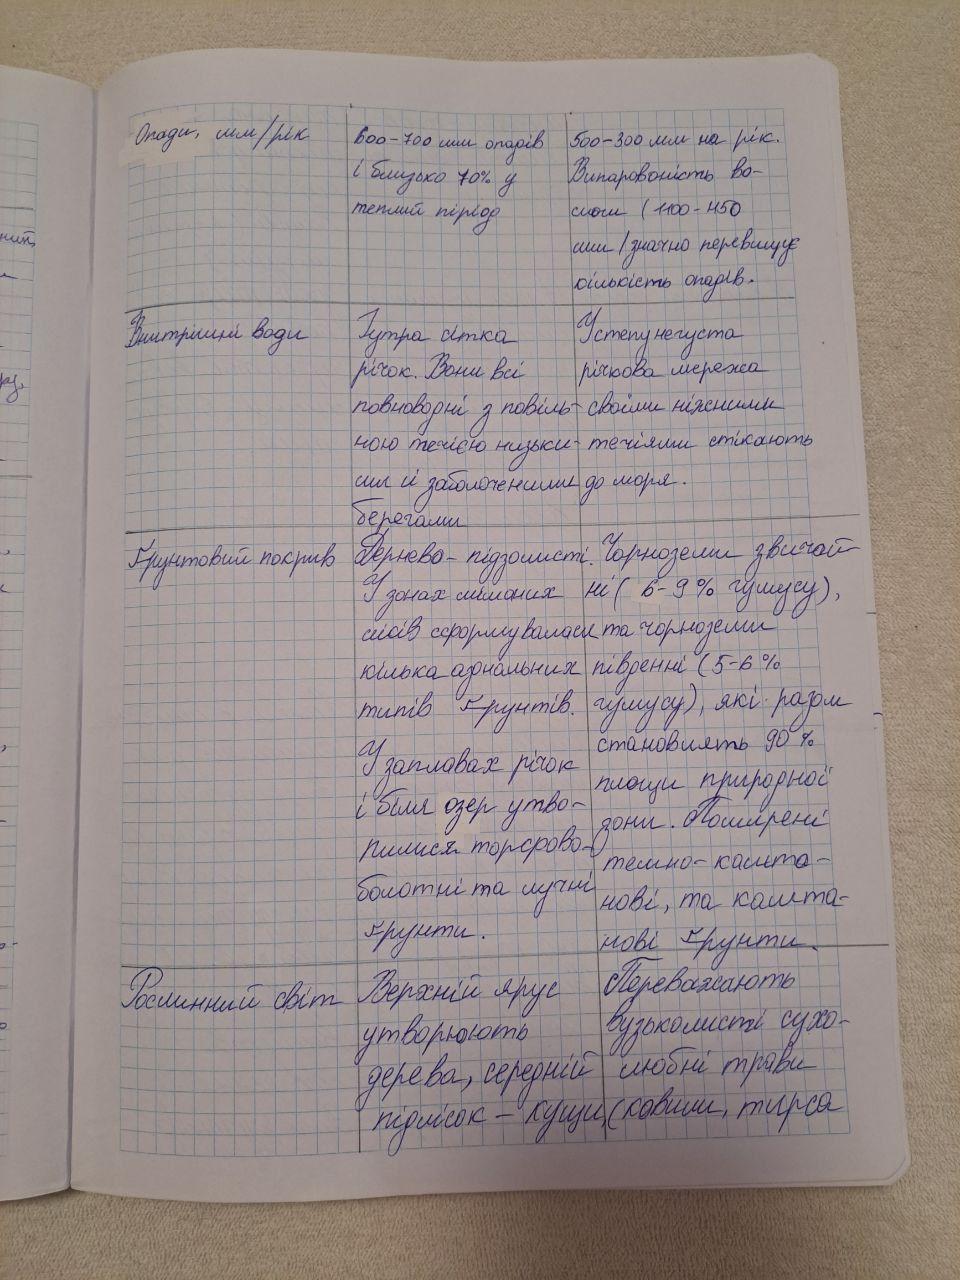 Опади, мм/рік
600-700 мм опадів
і близько 70% у
теплий період
500-300 мм на рік.
Випаровоність во-
логи (1100-1150
мм/значно перевищує
кількість опадів.
Внитрішні води
Гутра сітка
річок. Вони всі
повноводні з повіль-
ною течією низьки-
ми й заболоченими
берегами
У степу негуста
річкова мережа
своїми ніжними
течіями стікають
до моря.
Ґрунтовий покрив
Дерново-підзолисті.
У зонах мішаних
лісів сформувалася
кілька адональних
типів ґрунтів.
У заплавах річок
і біля озер утво-
рилися торфово-
болотні та лучні
ґрунти.
Чорноземи звичай-
ні (6-9% гумусу),
та чорноземи
південні (5-6%
гумусу), які разом
становлять 90%
площі природної
зони. Поширені
темно-кашта-
нові, та кашта-
нові ґрунти.
Рослинний світ
Верхній ярус
утворюють
дерева, середній
підлісок - кущі,
Переважають
вузьколисті сухо-
любні трави
(ковили, тирса